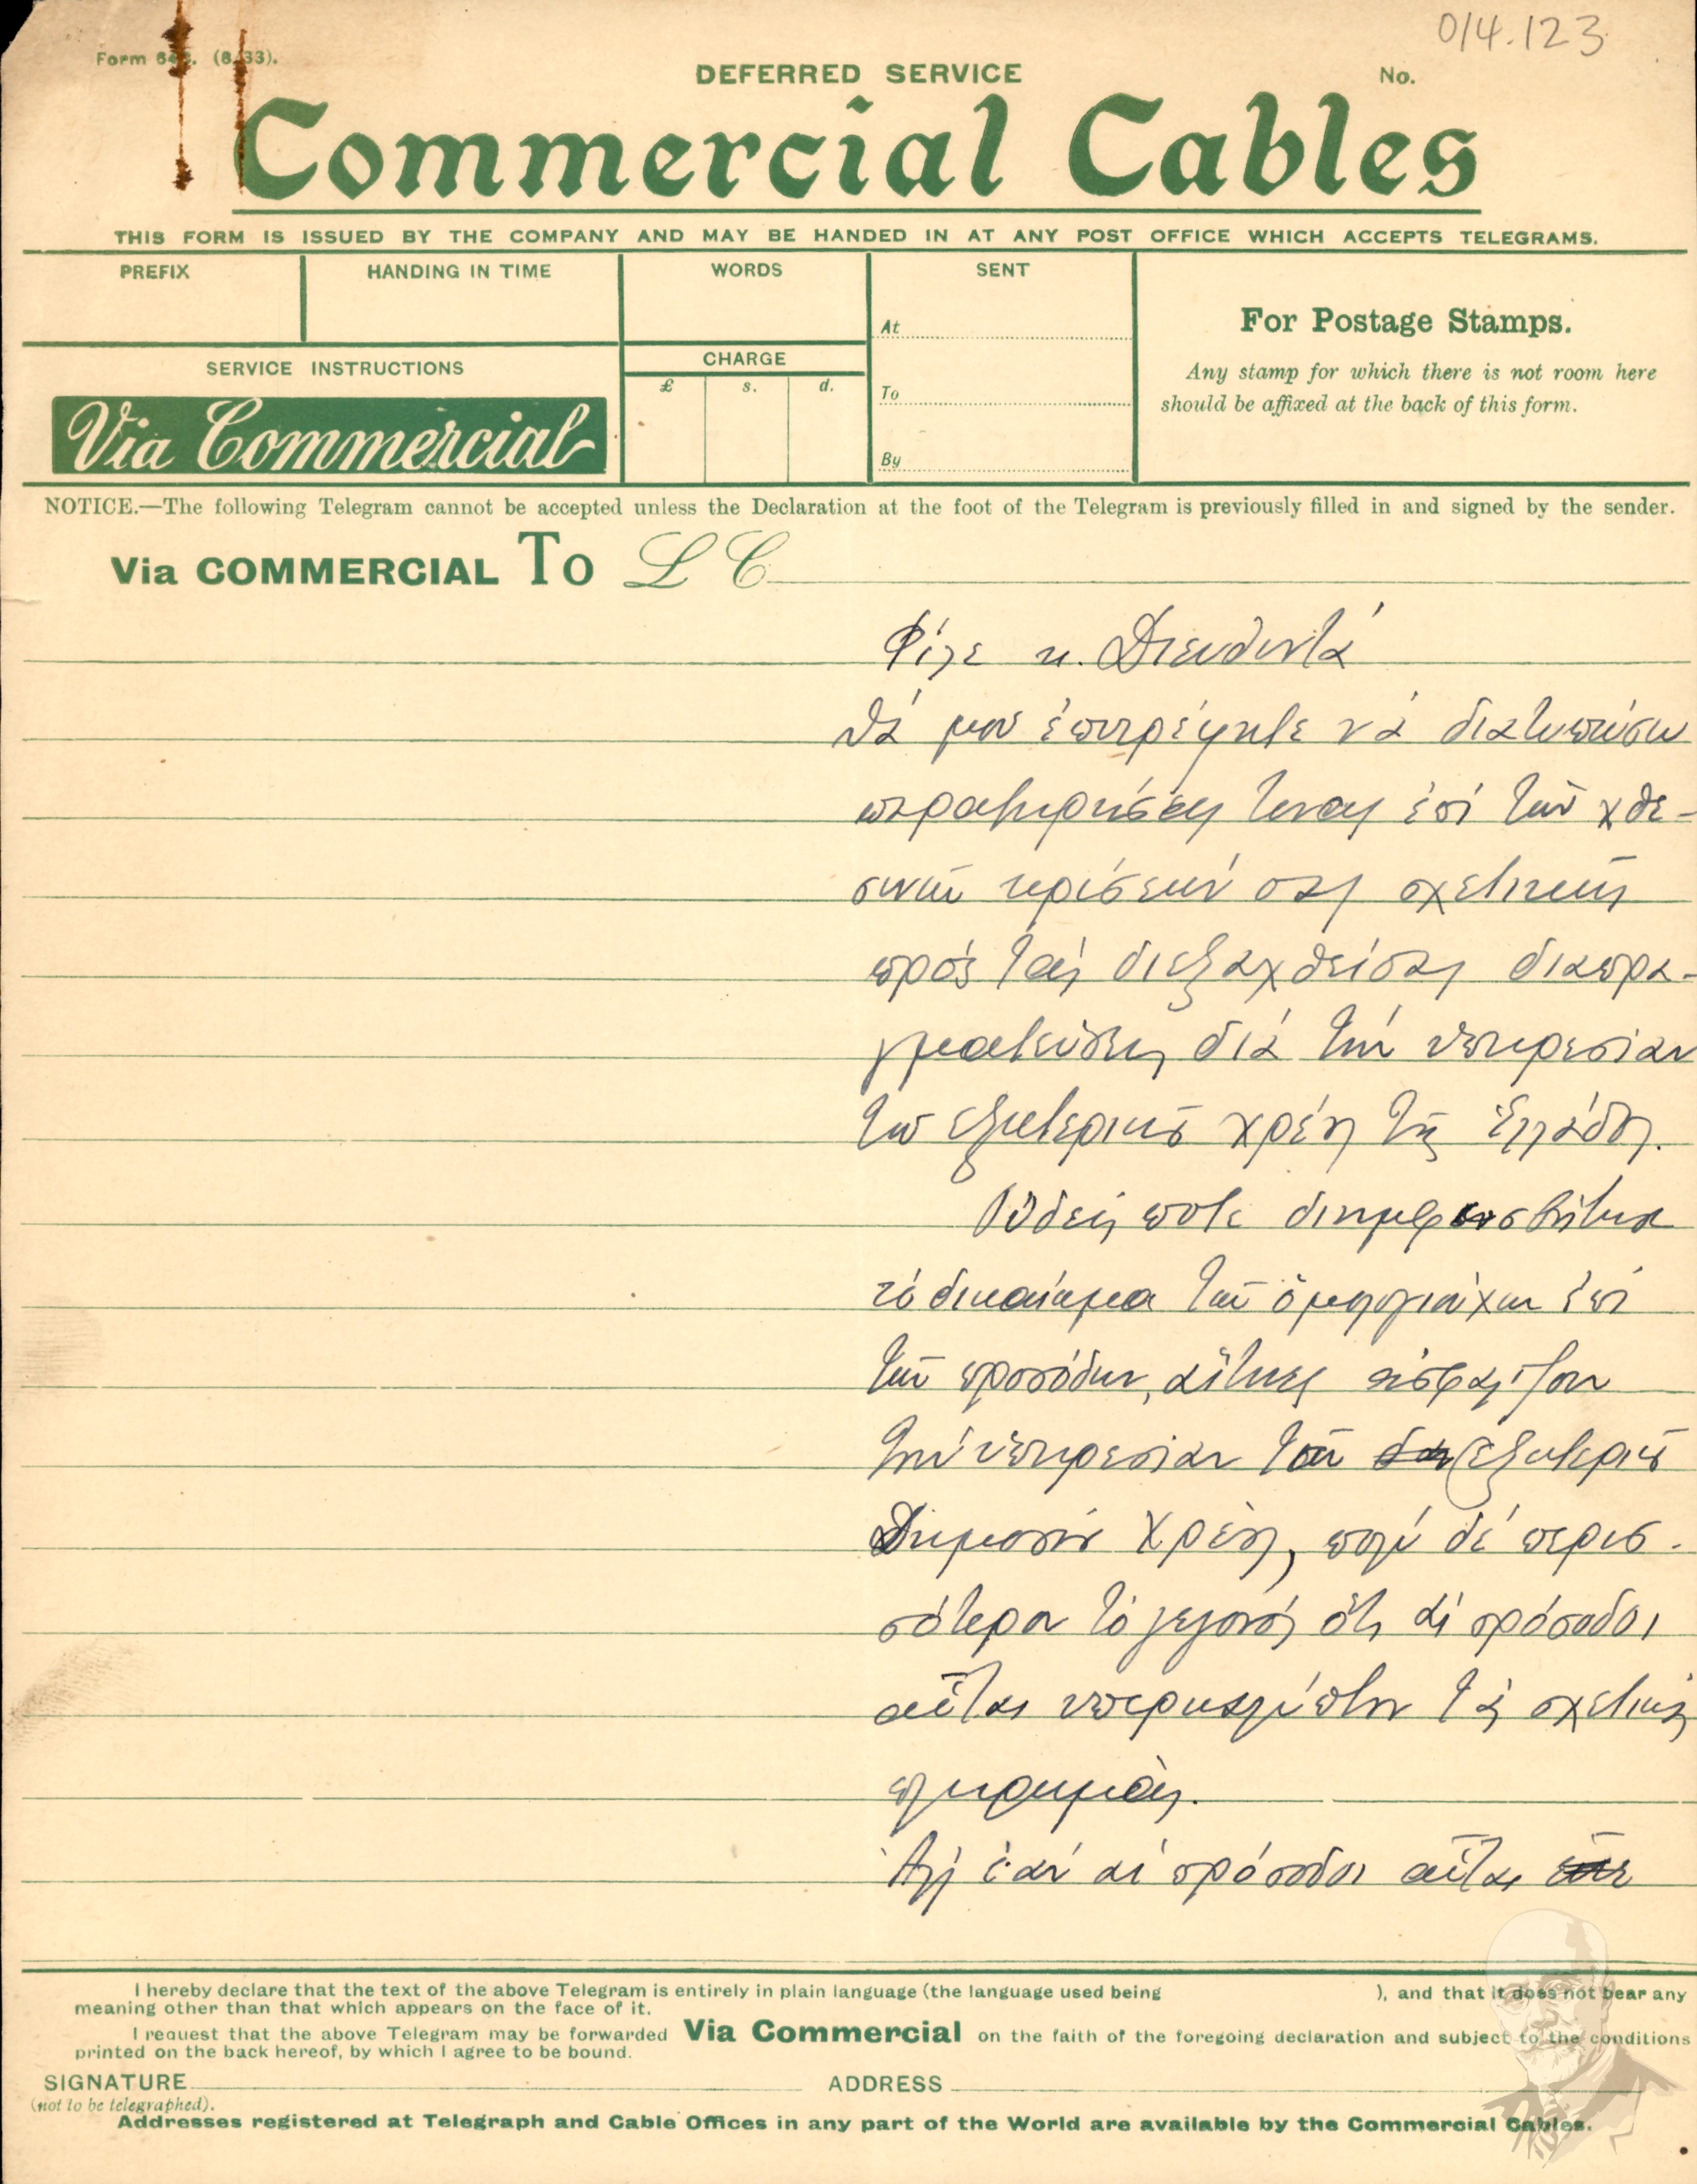 014.123
Form 642. (8/33).
DEFERRED SERVICE
No.
Commercial Cables
THIS FORM IS ISSUED BY THE COMPANY AND MAY BE HANDED IN AT ANY POST OFFICE WHICH ACCEPTS TELEGRAMS.
PREFIX
HANDING IN TIME
WORDS
SENT
At
For Postage Stamps.
SERVICE INSTRUCTIONS
CHARGE
Any stamp for which there is not room here
should be affixed at the back of this form.
£ s. d.
To
Via Commercial
By
NOTICE.—The following Telegram cannot be accepted unless the Declaration at the foot of the Telegram is previously filled in and signed by the sender.
Via COMMERCIAL To LC
Φίλε κ. Διευθυντά
Θά μου ἐπιτρέψητε νά διατυπώσω
παρατηρήσεις τινας ἐπί τῶν χθε-
σινῶν κρίσεών σας σχετικῶς
πρός τάς διεξαχθείσας διαπρα-
γματεύσεις διά τήν υπηρεσίαν
του εξωτερικού χρέους τῆς Ἑλλάδος.
Οὐδείς ποτε διημφισβήτησε
τό δικαίωμα τῶν ὁμολογιούχων ἐπί
τῶν προσόδων, αἵτινες
τήν ὑπηρεσίαν τοῦ εξωτερικοῦ
Δημοσίου Χρέους, πολύ δέ περισ-
σότερον τό γεγονός ὅτι αἱ πρόσοδοι
αὗται υπερκαλύπτουν τάς σχετικάς
πληρωμάς.
Ἀλλ' ἐάν αἱ πρόσοδοι αὗται
I hereby declare that the text of the above Telegram is entirely in plain language (the language used being ), and that it does not bear any
meaning other than that which appears on the face of it.
I request that the above Telegram may be forwarded Via Commercial on the faith of the foregoing declaration and subject to the conditions
printed on the back hereof, by which I agree to be bound.
SIGNATURE
ADDRESS
(not to be telegraphed).
Addresses registered at Telegraph and Cable Offices in any part of the World are available by the Commercial Cables.